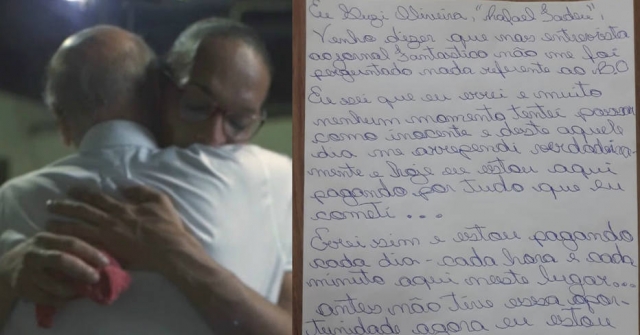 Eu Suzi Oliveira, "Rafael Tadeu",
Venho dizer que nas entrevista
ao jornal Fantástico não me foi
perguntado nada referente ao BO
Eu sei que eu errei e muito
nenhum momento tentei passar
como inocente e deste aquele
dia me arrependi verdadeira-
mente e hoje eu estou aqui
pagando por tudo que eu
cometi...
Errei sim e estou pagando
cada dia - cada hora e cada
minuto aqui neste lugar...
antes não tive essa opor-
tunidade agora eu estou